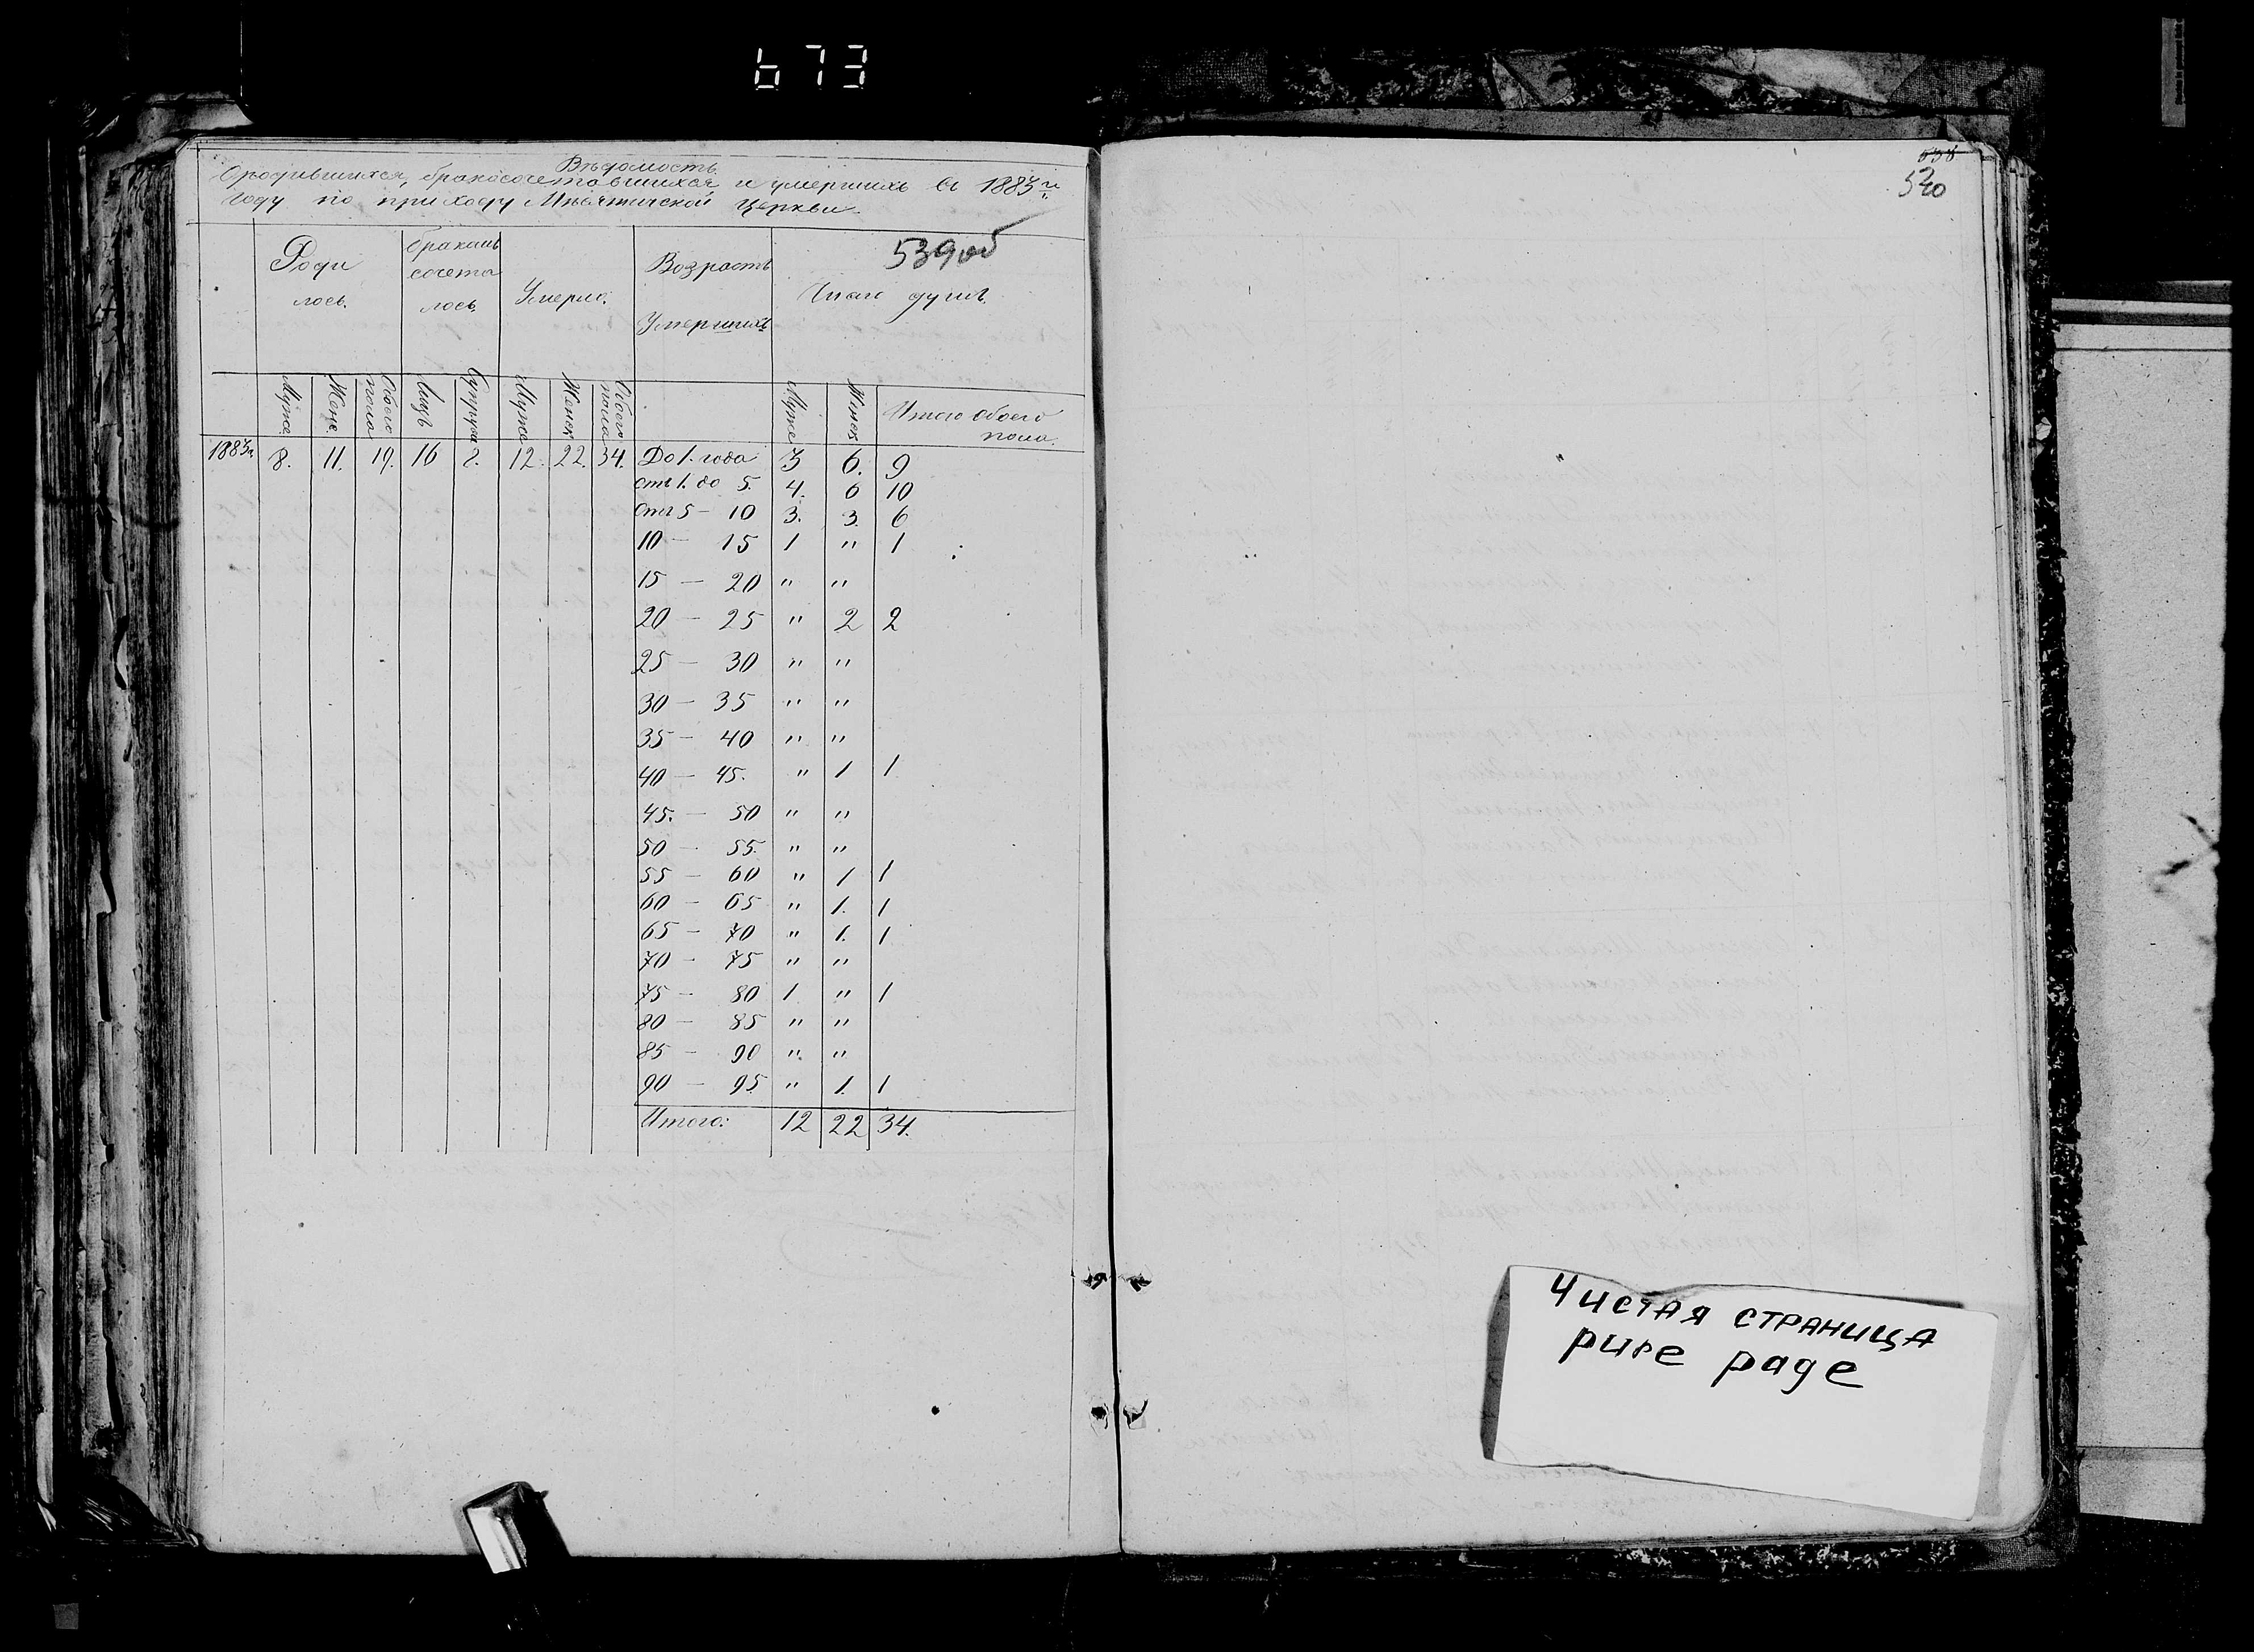 673
Вѣдомость
О родившихся, бракосочетавшихся и умершихъ въ 1883 м.
году по приходу Мнѣтичской Церкви.
539 об
Роди
лось.
бракомъ
сочета
лось
Умерло.
Возрастъ
Умершихъ
Число душъ.
Муже.
Жене.
Обоего пола
Лицъ
Супруж
Муже
Женск
Обоего пола
Муже
Женск
Итого обоего
пола.
1883 г. 8. 11. 19. 16 2. 12. 22. 34. До 1. года 3 6. 9
отъ 1. до 5. 4. 6 10
Отъ 5 - 10 3. 3. 6
10 - 15 1 " 1
15 - 20 " "
20 - 25 " 2 2
25 - 30 " "
30 - 35 " "
35 - 40 " "
40 - 45. " 1 1
45. - 50 " "
50 - 55. " "
55 - 60 " 1 1
60 - 65 " 1. 1
65 - 70 " 1. 1
70 - 75 " "
75 - 80 1 " 1
80 - 85 " "
85 - 90 " "
90 - 95. " 1. 1
Итого: 12 22 34.
538
520
Чистая страница
pure page